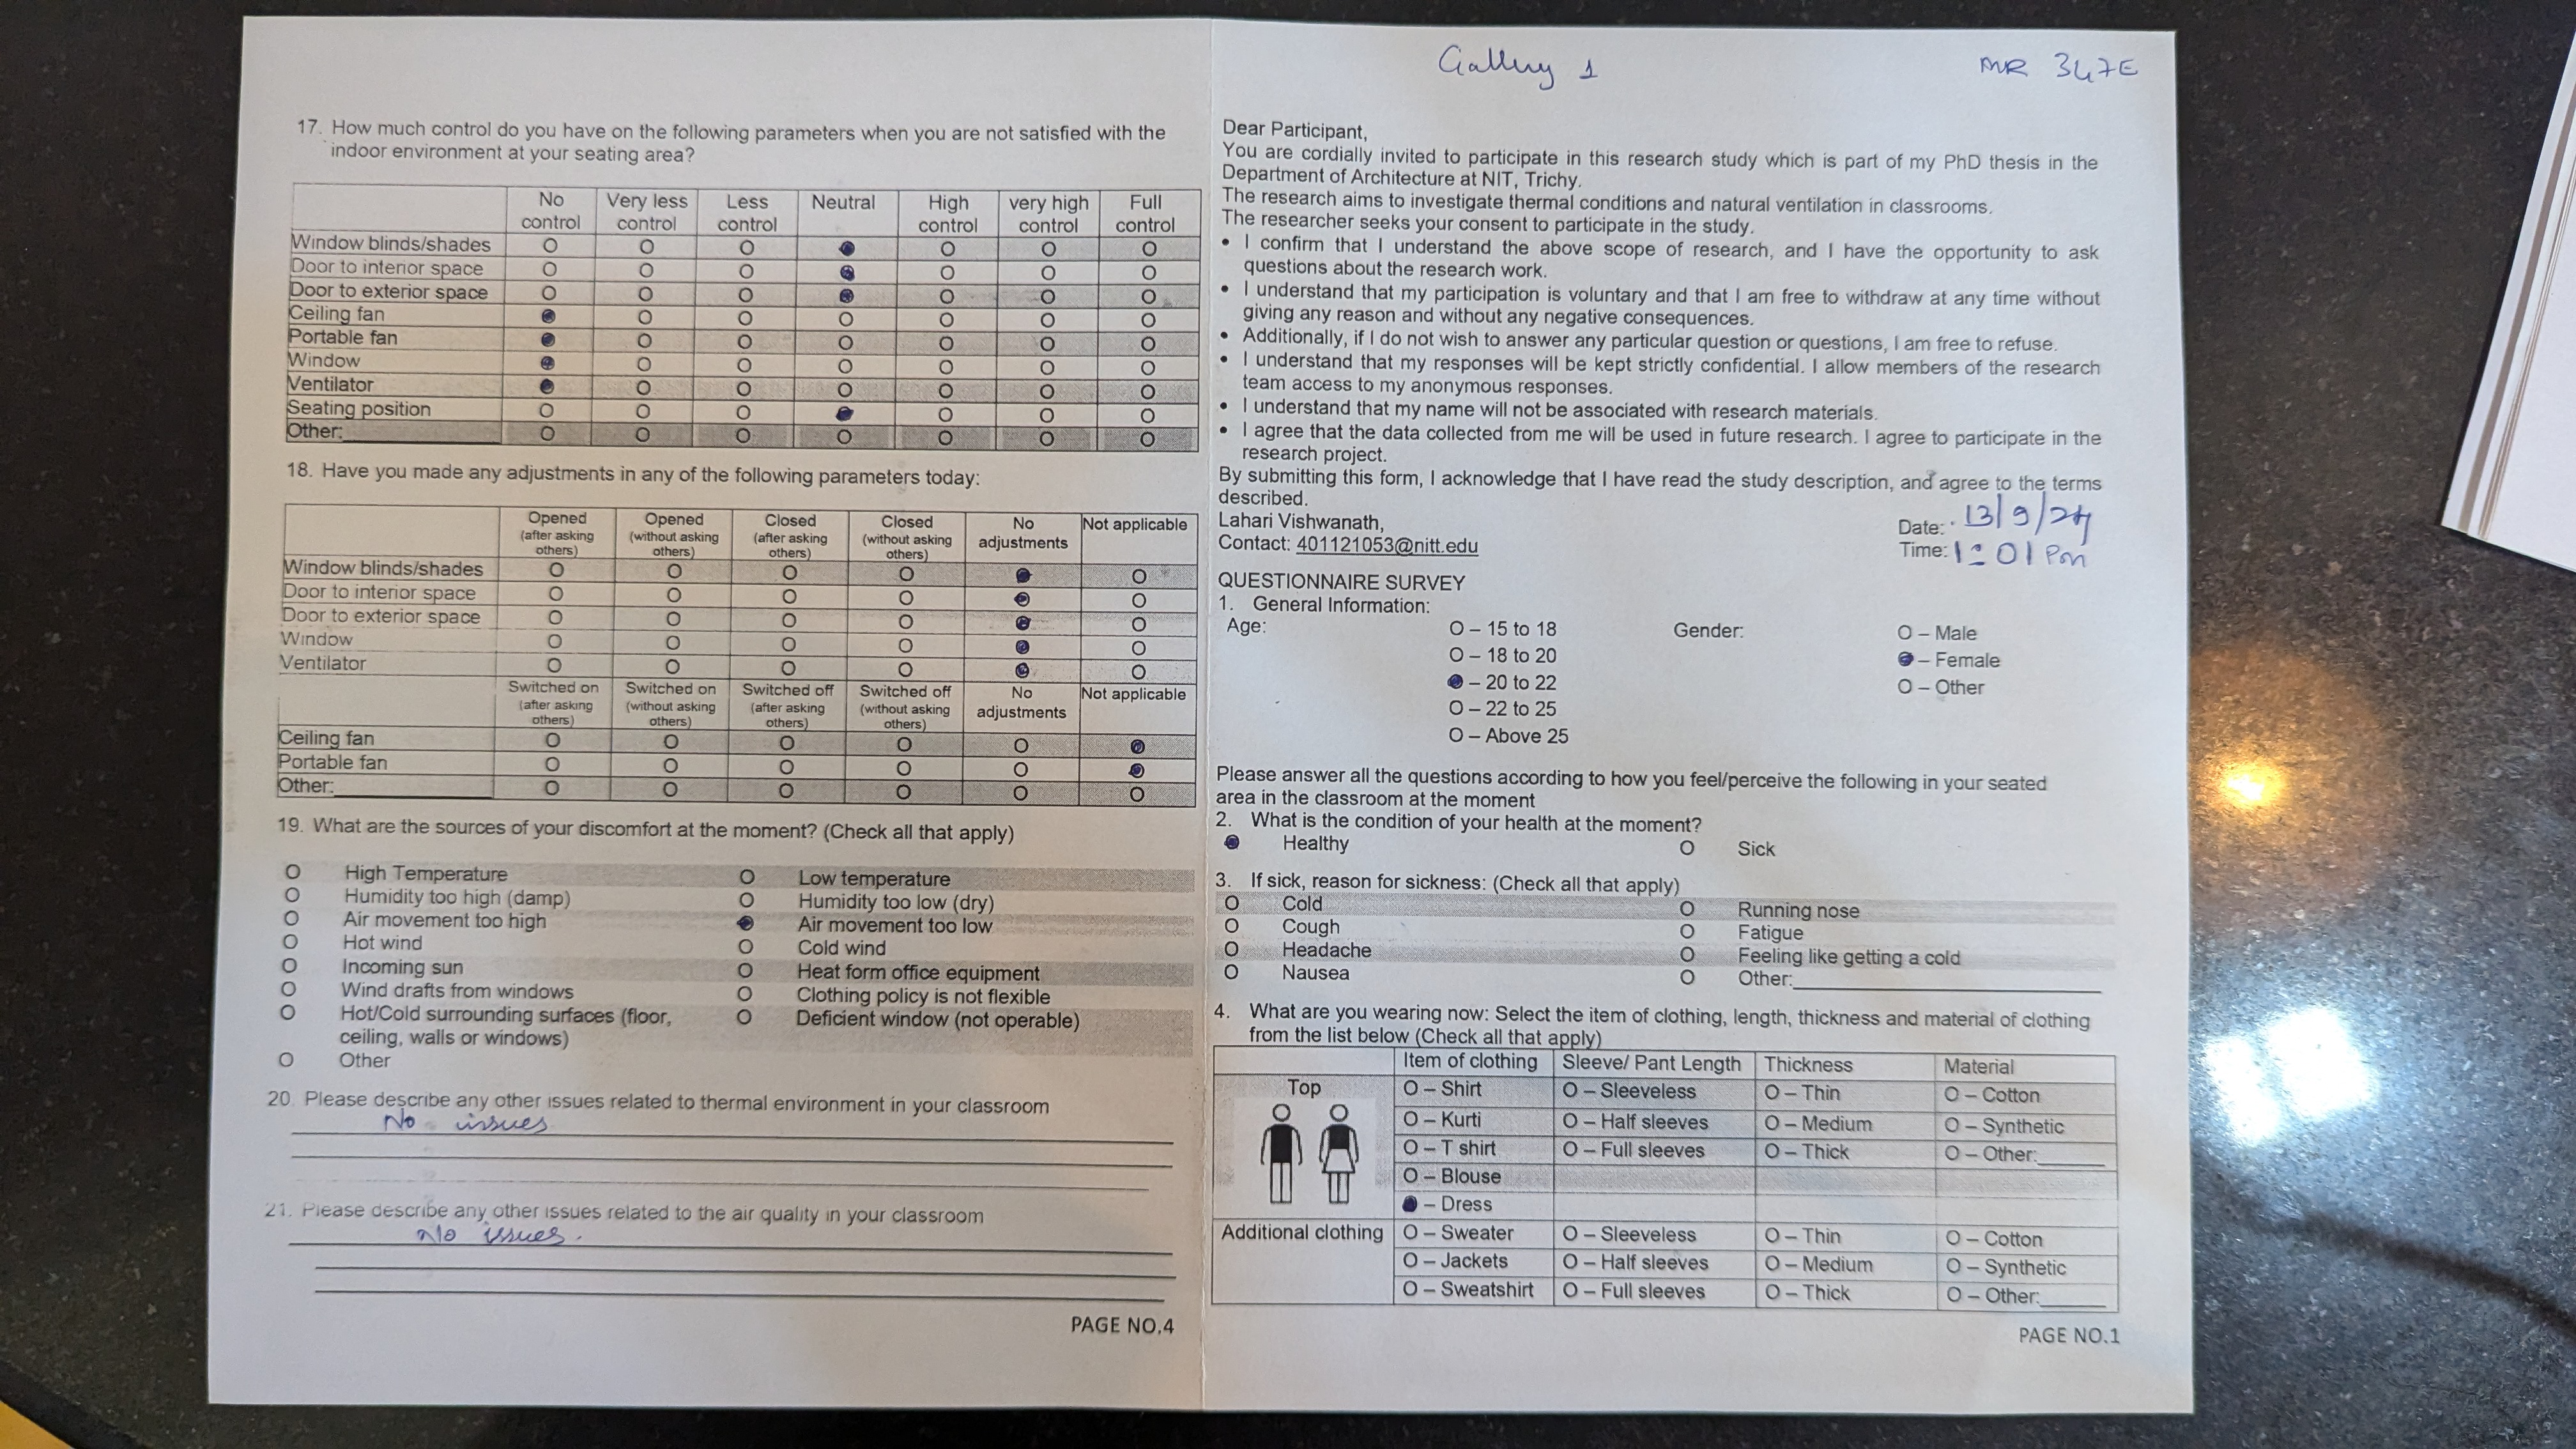 17. How much control do you have on the following parameters when you are not satisfied with the
indoor environment at your seating area?
No control Very less control Less control Neutral High control very high control Full control
Window blinds/shades O O O ● O O O
Door to interior space O O O ● O O O
Door to exterior space O O O ● O O O
Ceiling fan ● O O O O O O
Portable fan ● O O O O O O
Window ● O O O O O O
Ventilator ● O O O O O O
Seating position O O O ● O O O
Other: O O O O O O O
18. Have you made any adjustments in any of the following parameters today:
Opened (after asking others) Opened (without asking others) Closed (after asking others) Closed (without asking others) No adjustments Not applicable
Window blinds/shades O O O O ● O
Door to interior space O O O O ● O
Door to exterior space O O O O ● O
Window O O O O ● O
Ventilator O O O O ● O
Switched on (after asking others) Switched on (without asking others) Switched off (after asking others) Switched off (without asking others) No adjustments Not applicable
Ceiling fan O O O O O ●
Portable fan O O O O O ●
Other: O O O O O O
19. What are the sources of your discomfort at the moment? (Check all that apply)
O High Temperature O Low temperature
O Humidity too high (damp) O Humidity too low (dry)
O Air movement too high ● Air movement too low
O Hot wind O Cold wind
O Incoming sun O Heat form office equipment
O Wind drafts from windows O Clothing policy is not flexible
O Hot/Cold surrounding surfaces (floor, O Deficient window (not operable)
ceiling, walls or windows)
O Other
20. Please describe any other issues related to thermal environment in your classroom
No issues
21. Please describe any other issues related to the air quality in your classroom
No issues.
PAGE NO.4
Gallery 1 MR 347E
Dear Participant,
You are cordially invited to participate in this research study which is part of my PhD thesis in the
Department of Architecture at NIT, Trichy.
The research aims to investigate thermal conditions and natural ventilation in classrooms.
The researcher seeks your consent to participate in the study.
• I confirm that I understand the above scope of research, and I have the opportunity to ask
questions about the research work.
• I understand that my participation is voluntary and that I am free to withdraw at any time without
giving any reason and without any negative consequences.
• Additionally, if I do not wish to answer any particular question or questions, I am free to refuse.
• I understand that my responses will be kept strictly confidential. I allow members of the research
team access to my anonymous responses.
• I understand that my name will not be associated with research materials.
• I agree that the data collected from me will be used in future research. I agree to participate in the
research project.
By submitting this form, I acknowledge that I have read the study description, and agree to the terms
described.
Lahari Vishwanath, Date: 13/9/24
Contact: 401121053@nitt.edu Time: 1:01 Pm
QUESTIONNAIRE SURVEY
1. General Information:
Age: O – 15 to 18 Gender: O – Male
O – 18 to 20 ● – Female
● – 20 to 22 O – Other
O – 22 to 25
O – Above 25
Please answer all the questions according to how you feel/perceive the following in your seated
area in the classroom at the moment
2. What is the condition of your health at the moment?
● Healthy O Sick
3. If sick, reason for sickness: (Check all that apply)
O Cold O Running nose
O Cough O Fatigue
O Headache O Feeling like getting a cold
O Nausea O Other:
4. What are you wearing now: Select the item of clothing, length, thickness and material of clothing
from the list below (Check all that apply)
Item of clothing Sleeve/ Pant Length Thickness Material
Top O – Shirt O – Sleeveless O – Thin O – Cotton
O – Kurti O – Half sleeves O – Medium O – Synthetic
O – T shirt O – Full sleeves O – Thick O – Other:
O – Blouse
● – Dress
Additional clothing O – Sweater O – Sleeveless O – Thin O – Cotton
O – Jackets O – Half sleeves O – Medium O – Synthetic
O – Sweatshirt O – Full sleeves O – Thick O – Other:
PAGE NO.1